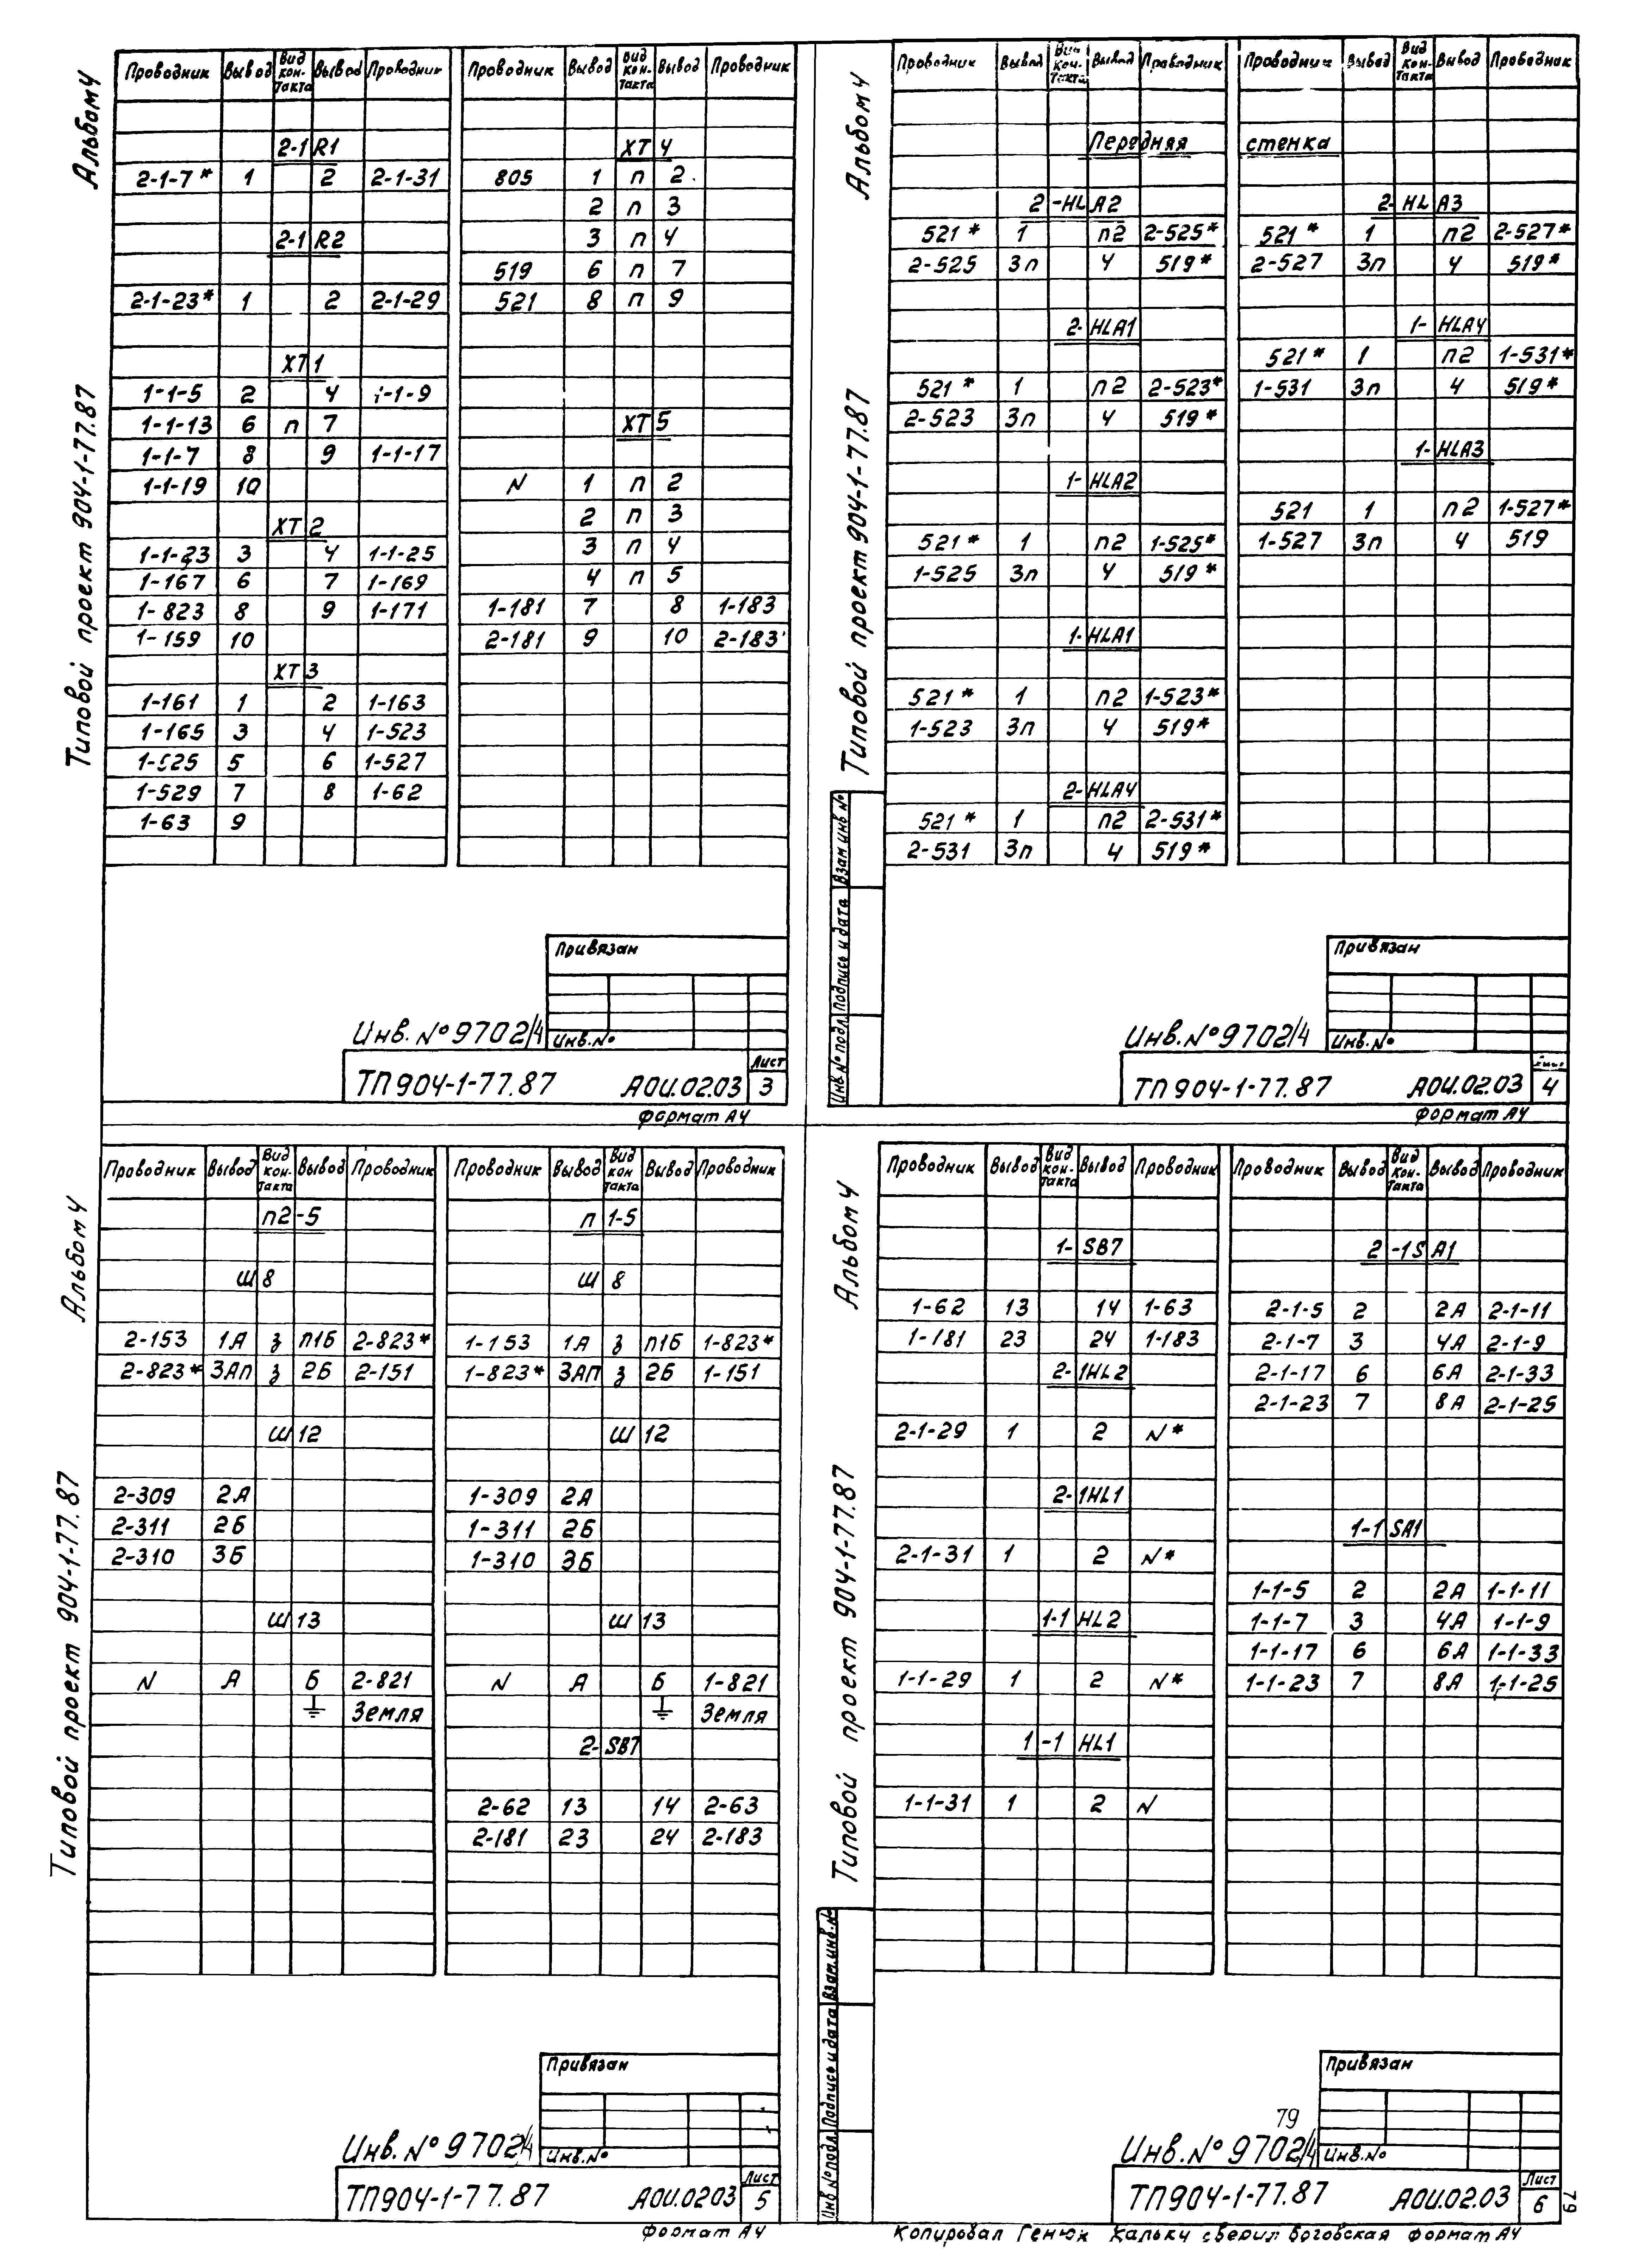 Альбом 4
Типовой проект 904-1-77.87
Проводник Вывод Вид кон-такта Вывод Проводник Проводник Вывод Вид кон-такта Вывод Проводник
2-1R1 ХТ4
2-1-7* 1 2 2-1-31 805 1 п 2
2 п 3
2-1R2 3 п 4
519 6 п 7
2-1-23* 1 2 2-1-29 521 8 п 9
ХТ1
1-1-5 2 4 1-1-9
1-1-13 6 п 7 ХТ5
1-1-7 8 9 1-1-17
1-1-19 10 N 1 п 2
ХТ2 2 п 3
1-1-23 3 4 1-1-25 3 п 4
1-167 6 7 1-169 4 п 5
1-823 8 9 1-171 1-181 7 8 1-183
1-159 10 2-181 9 10 2-183
ХТ3
1-161 1 2 1-163
1-165 3 4 1-523
1-525 5 6 1-527
1-529 7 8 1-62
1-63 9
Привязан
Инв. № 9702/4 Инв.№
ТП904-1-77.87 АОИ.02.03 Лист 3
Формат А4
Альбом 4
Типовой проект 904-1-77.87
Проводник Вывод Вид кон-такта Вывод Проводник Проводник Вывод Вид кон-такта Вывод Проводник
Передняя стенка
2-HLA2 2-HLA3
521* 1 п2 2-525* 521* 1 п2 2-527*
2-525 3п 4 519* 2-527 3п 4 519*
2-HLA1 1-HLA4
521* 1 п2 1-531*
521* 1 п2 2-523* 1-531 3п 4 519*
2-523 3п 4 519*
1-HLA3
1-HLA2
521 1 п2 1-527*
521* 1 п2 1-525* 1-527 3п 4 519
1-525 3п 4 519*
1-HLA1
521* 1 п2 1-523*
1-523 3п 4 519*
2-HLA4
521* 1 п2 2-531*
2-531 3п 4 519*
Инв № подл. Подпись и дата Взам инв №
Привязан
Инв. № 9702/4 Инв.№
ТП904-1-77.87 АОИ.02.03 4
Формат А4
Альбом 4
Типовой проект 904-1-77.87
Проводник Вывод Вид кон-такта Вывод Проводник Проводник Вывод Вид кон такта Вывод Проводник
п2-5 п1-5
Ш8 Ш8
2-153 1А з п1Б 2-823* 1-153 1А з п1Б 1-823*
2-823* 3Ап з 2Б 2-151 1-823* 3АП з 2Б 1-151
Ш12 Ш12
2-309 2А 1-309 2А
2-311 2Б 1-311 2Б
2-310 3Б 1-310 3Б
Ш13 Ш13
N А Б 2-821 N А Б 1-821
Земля Земля
2-SB7
2-62 13 14 2-63
2-181 23 24 2-183
Привязан
Инв. № 9702/4 Инв.№
ТП904-1-77.87 АОИ.0203 Лист 5
Формат А4
Альбом 4
Типовой проект 904-1-77.87
Проводник Вывод Вид кон-такта Вывод Проводник Проводник Вывод Вид кон-такта Вывод Проводник
1-SB7 2-1SA1
1-62 13 14 1-63 2-1-5 2 2А 2-1-11
1-181 23 24 1-183 2-1-7 3 4А 2-1-9
2-1HL2 2-1-17 6 6А 2-1-33
2-1-23 7 8А 2-1-25
2-1-29 1 2 N*
2-1HL1
1-1SA1
2-1-31 1 2 N*
1-1-5 2 2А 1-1-11
1-1HL2 1-1-7 3 4А 1-1-9
1-1-17 6 6А 1-1-33
1-1-29 1 2 N* 1-1-23 7 8А 1-1-25
1-1HL1
1-1-31 1 2 N
Инв № подл. Подпись и дата Взам.инв.№
Привязан
79
Инв. № 9702/4 Инв.№
ТП904-1-77.87 АОИ.02.03 Лист 6
79
Копировал Генюк Кальку сверил Боговская Формат А4